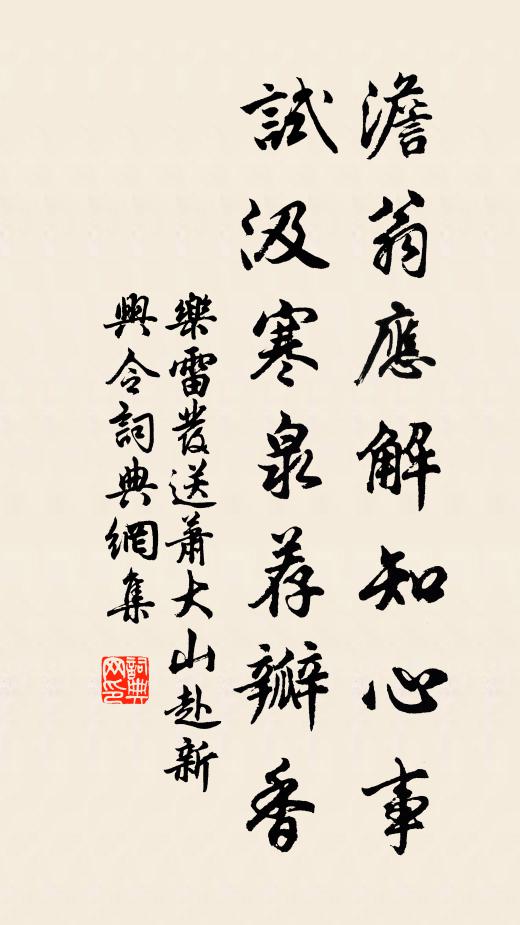 澹翁應解知心事
試汲寒泉荐瓣香
樂雷發送蕭大山赴新
興令詞典網集
詞典网印